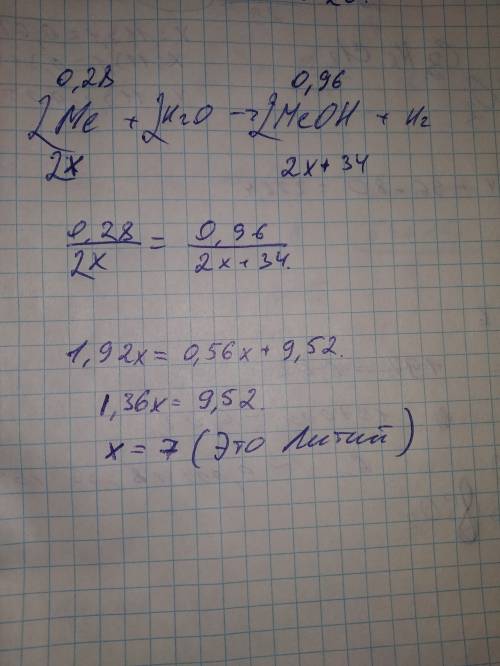 0,28 0,96
2Me + 2H2O → 2MeOH + H2
2x 2x + 34
0,28 / 2x = 0,96 / 2x + 34.
1,92x = 0,56x + 9,52.
1,36x = 9,52.
x = 7 (Это Литий)